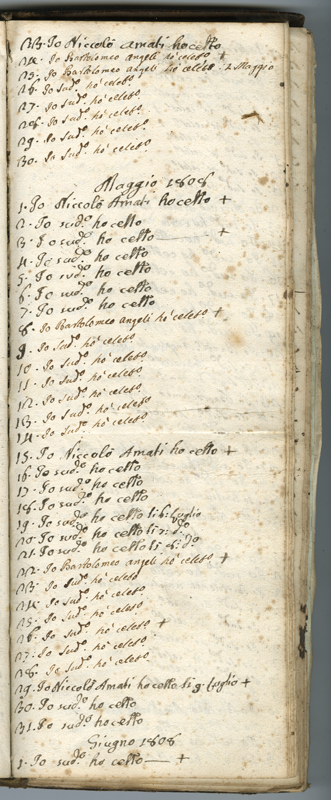 23. Io Niccolò Amati ho celto
24. Io Bartolomeo angeli ho celeto +
25. Io Bartolomeo angeli ho celeto. 2 Maggio
26. Io sud.º ho celeto
27. Io sud.º ho celeto
28. Io sud.º ho celeto
29. Io sud.º ho celeto
30. Io sud.º ho celeto
Maggio 1808
1. Io Niccolò Amati ho celto +
2. Io sud.º ho celto
3. Io sud.º ho celto +
4. Io sud.º ho celto
5. Io sud.º ho celto
6. Io sud.º ho celto
7. Io sud.º ho celto
8. Io Bartolomeo angeli ho celeto +
9. Io sud.º ho celeto
10. Io sud.º ho celeto
11. Io sud.º ho celeto
12. Io sud.º ho celeto
13. Io sud.º ho celeto
14. Io sud.º ho celeto
15. Io Niccolò Amati ho celto +
16. Io sud.º ho celto
17. Io sud.º ho celto
18. Io sud.º ho celto
19. Io sud.º ho celto li 6. Luglio
20. Io sud.º ho celto li 7. d.º
21. Io sud.º ho celto li 8. d.º
22. Io Bartolomeo angeli ho celeto +
23. Io sud.º ho celeto
24. Io sud.º ho celeto
25. Io sud.º ho celeto
26. Io sud.º ho celeto +
27. Io sud.º ho celeto
28. Io sud.º ho celeto
29. Io Niccolò Amati ho celto li 9. Luglio +
30. Io sud.º ho celto
31. Io sud.º ho celto
Giugno 1808
1. Io sud.º ho celto +